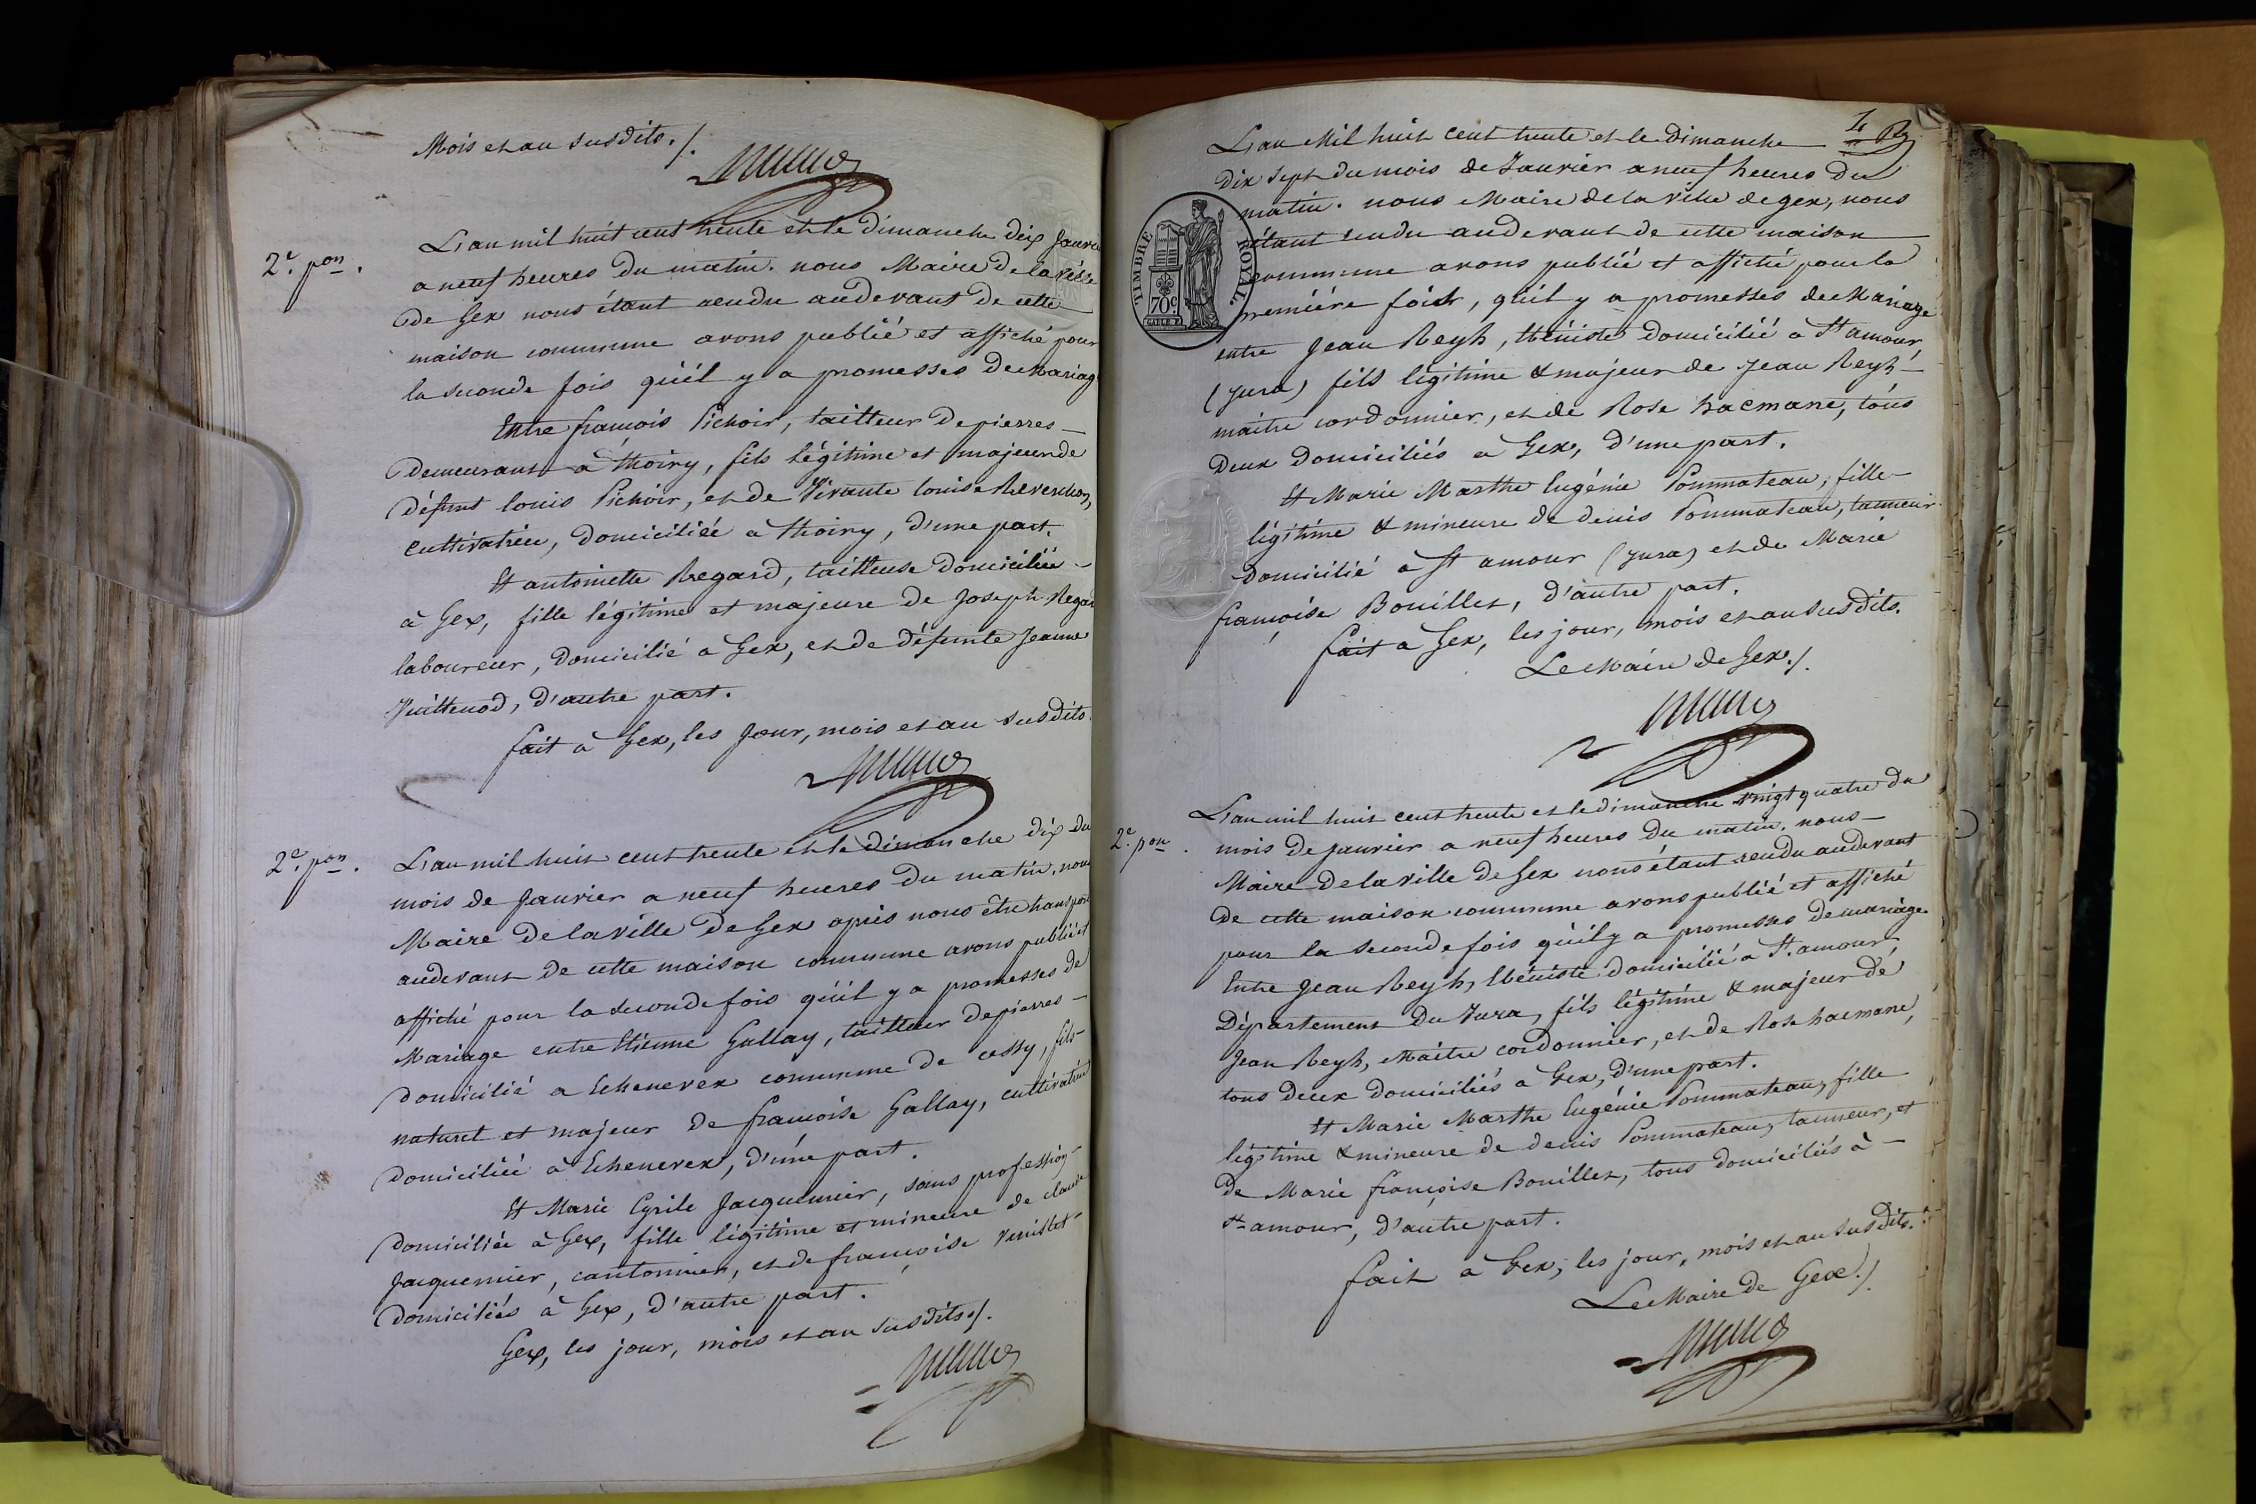 Mois et an susdits ./.
2e. pon.
L'an mil huit cent trente et le dimanche dix Janvier
a neuf heures du matin. nous Maire de la ville
de Gex nous étant rendu audevant de cette
maison commune avons publié et affiché pour
la seconde fois qu'il y a promesses de Mariage
Entre françois Pichoir, tailleur de pierres –
demeurant à thoiry, fils légitime et majeur de
défunt louis Pichoir, et de Vivante louise Reverchon,
cultivatrice, domiciliée a thoiry, d'une part.
Et antoinette Regard, tailleuse domiciliée –
à Gex, fille légitime et majeure de Joseph Regard
laboureur, domicilié a Gex, et de défunte Jeanne
Vuillenod, d'autre part.
fait à Gex, les Jour, mois et an susdits.
2e. pon.
L'an mil huit cent trente et le dimanche dix du
mois de Janvier a neuf heures du matin. nous
Maire de la ville de Gex après nous être transporté
audevant de cette maison commune avons publié et
affiché pour la seconde fois qu'il y a promesses de
Mariage entre Etienne Gallay, tailleur de pierres –
domicilié a Echenevex commune de cessy, fils –
naturel et majeur de françoise Gallay, cultivatrice
domiciliée à Echenevex, d'une part.
Et Marie Cyrile Jacquemier, sans profession –
domiciliée à Gex, fille légitime et mineure de claude
Jacquemier, cantonnier, et de françoise Venistet –
domiciliés à Gex, d'autre part.
Gex, les jour, mois et an susdits ./.
L'an Mil huit cent trente et le Dimanche
dix sept du mois de Janvier a neuf heures du
matin. nous Maire de la ville de gex, nous
étant rendu audevant de cette maison
commune avons publié et affiché pour la
première fois, qu'il y a promesses de Mariage
entre Jean Reyh, Ebéniste domicilié à St amour
(Jura) fils légitime & majeur de Jean Reyh –
maitre cordonnier, et de Rose hacmane, tous
Deux domiciliés a Gex, d'une part.
Et Marie Marthe Eugénie Pommateau, fille –
légitime & mineure de denis Pommateau, tanneur
domicilié à St amour (Jura) et de Marie
françoise Bouillet, d'autre part.
fait a Gex, les jour, mois et an susdits.
Le Maire de Gex ./.
TIMBRE ROYAL.
70c.
2e. pon.
L'an mil huit cent trente et le dimanche vingt quatre du
mois de Janvier a neuf heures du matin. nous –
Maire de la ville de Gex nous étant rendu audevant
de cette maison commune avons publié et affiché
pour la seconde fois qu'il y a promesses de mariage
Entre Jean Reyh, Ebéniste domicilié à St. amour
Département du Jura, fils légitime & majeur de
Jean Reyh, Maître cordonnier, et de Rose hacmane,
tous Deux domiciliés a Gex, d'une part.
Et Marie Marthe Eugénie Pommateau, fille
légitime & mineure de denis Pommateau, tanneur, et
de Marie françoise Bouillet, tous domiciliés à –
St amour, d'autre part.
fait a Gex, les jour, mois et an susdits.
Le Maire de Gex ./.